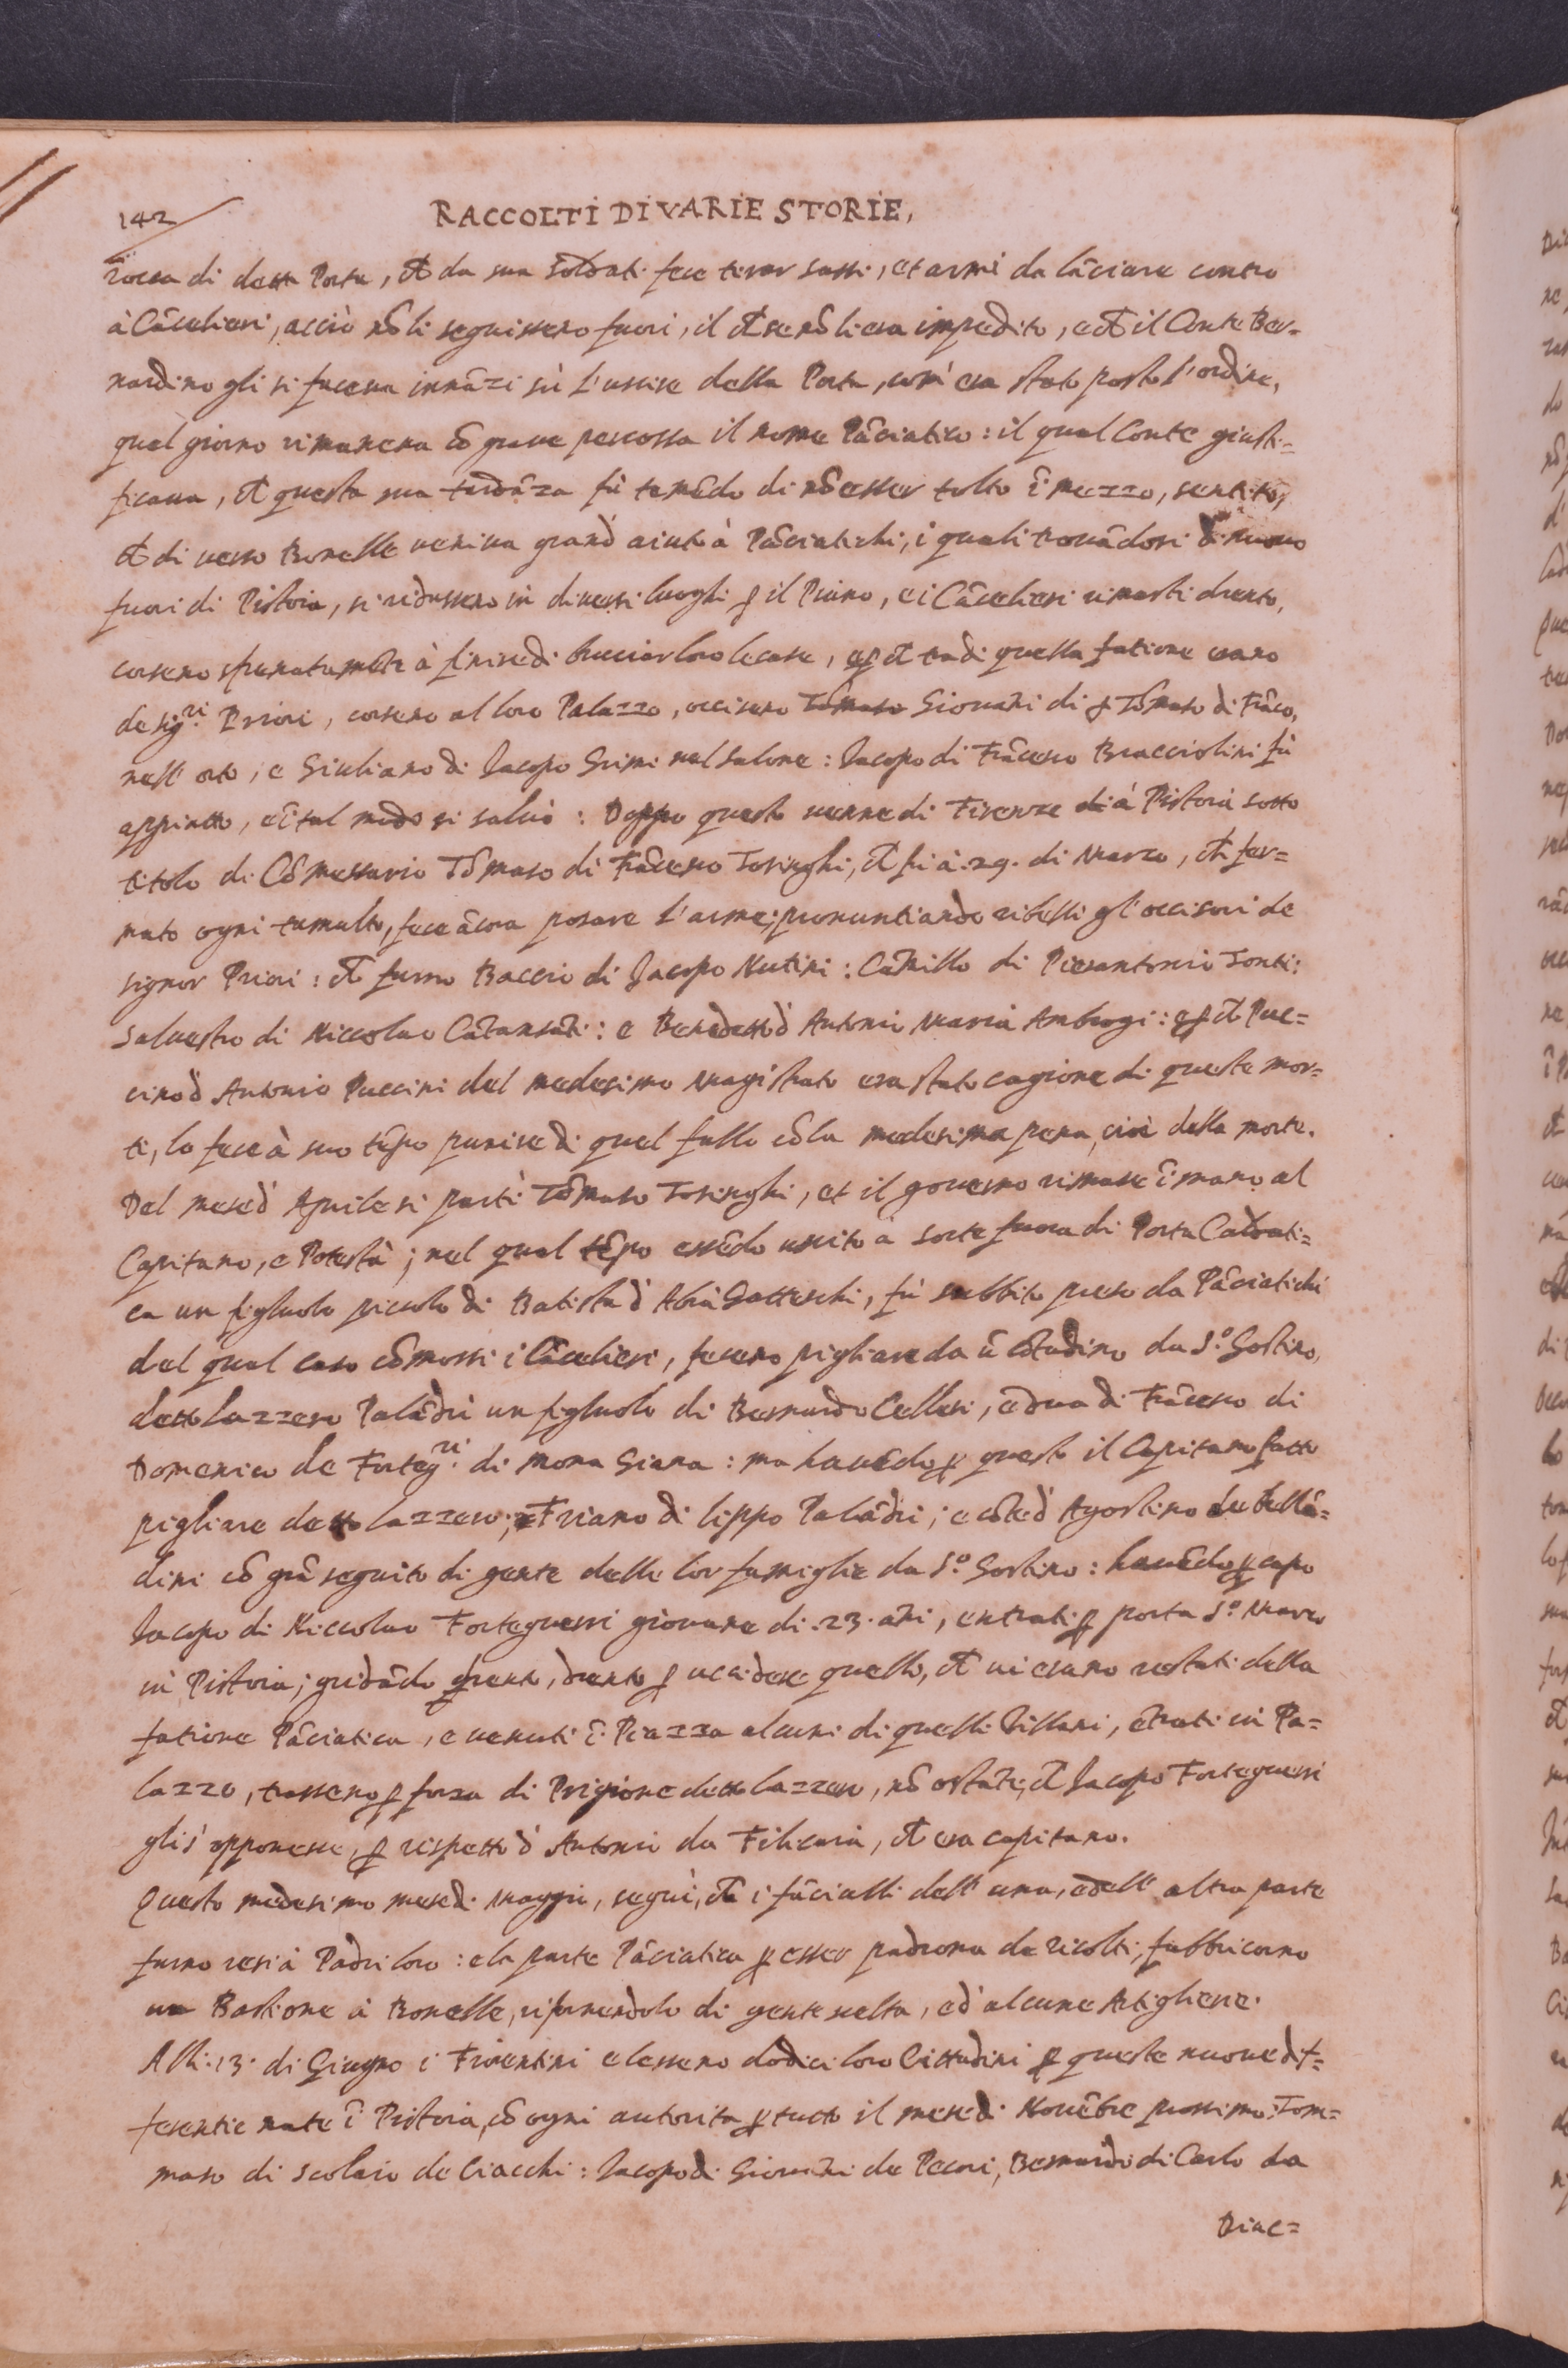 142
RACCOLTI DI VARIE STORIE,
rocca di detta Porta, et da sua soldati fece tirar sassi, et armi da lãciare contro
à Cãcelieri, acciò nõ li seguissero fuori, il ch̃ se nõ li era impedito, e ch̃ il Conte Ber=
nardino gli si faceva innãzi sù l'uscire della Porta, così era stato posto l'ordine,
quel giorno rimaneva cõ grave percossa il nome Pãciatico: il qual Conte giusti=
ficava, ch̃ questa sua tardãza fù temẽdo di nõ esser tolto ĩ mezzo, sentito,
ch̃ di verso Bonelle veniva grand' aiuto à Pãciatichi, i quali trovãdosi di nuovo
fuori di Pistoia, si ridussero in diversi luoghi p il Piano, e i Cãcelieri rimasti drento,
corseno sfrenatamẽte à finire di bruciar loro le case, e p ch̃ tra di quella fatione erano
de sig.ri Priori, corseno al loro Palazzo, occiseno Tõmaso Giovãni di s Tõmaso di Frãco,
nell' orto, e Giuliano di Jacopo Grimi nel salone: Jacopo di Frãcesco Bracciolini fù
appiatto, e ĩ tal modo si salvò: Doppo questo venne di Firenze di à Pistoia sotto
titolo di Cõmessario Tõmaso di Frãcesco Tosinghi, ch̃ fù à .29. di Marzo, ch̃ fer=
mato ogni tumulto, fece ãcora posare l'arme; pronuntiando ribelli gl'occisori de
signor Priori: ch̃ furno Baccio di Jacopo Nutini: Camillo di Pierantonio Tonti:
Salvestro di Niccolao Catansãti: e Benedetto d' Antonio Maria Ambrogi: e p ch̃ Puc=
cino d' Antonio Puccini del medesimo Magistrato era stato cagione di queste mor=
ti, lo fece à suo tẽpo punire di quel fallo cõ la medesima pena, cioè della morte.
Del mese d' Aprile si partì Tõmaso Tosinghi, et il governo rimase ĩ mano al
Capitano, e Potestà; nel qual tẽpo essẽdo uscito à sorte fuora di Porta Caldati=
ca un figluolo piccolo di Batista d' Abrà Gatteschi, fù subbito preso da Pãciatichi
del qual caso cõmossi i Cãcelieri, feceno pigliare da ũ cõtadino da S.o Gostino,
detto Lazzero Palãdri un figluolo di Bernardo Cellesi, e dua di Frãcesco di
Domenico de Forteg.ri di mona Giana: ma havẽdo p questo il Capitano fatto
pigliare detto Lazzero; e Friano di Lippo Palãdri; e cõte d' Agostino de Bellã=
dini cõ grã seguito di gente delle lor famiglie da S.o Gostino: havẽdo p capo
Jacopo di Niccolao Forteguerri giovane di .23. ãni, entrati p porta S.o Marco
in Pistoia; gridãdo drento, drento p uccidere quello, ch̃ vi erano restati della
fatione Pãciatica, e venuti ĩ Piazza alcuni di quelli Villani, ẽtrati in Pa=
lazzo, trasseno p forza di Prigione detto Lazzero, nõ ostãte, ch̃ Jacopo Forteguerri
gli s' opponesse, p rispetto d' Antonio da Filicaia, ch̃ era capitano.
Questo medesimo mese di Maggio, seguì, ch̃ i fãciulli dell' una, e dell' altra parte
furno resi à Padri loro: e la parte Pãciatica p esser padrona de ricolti, fabbricorno
un Bastione à Bonelle, rifornendolo di gente scelta, ed' alcune Artiglierie.
Alli .13. di Giugno i Fiorentini elesseno dodici loro Cittadini p queste nuove dif=
ferentie nate ĩ Pistoia, cõ ogni autorita p tutto il mese di Novẽbre prossimo; Tom=
maso di Scolaio de Ciacchi: Jacopo di Giovãni de Pecori, Bernardo di Carlo da
Diac=